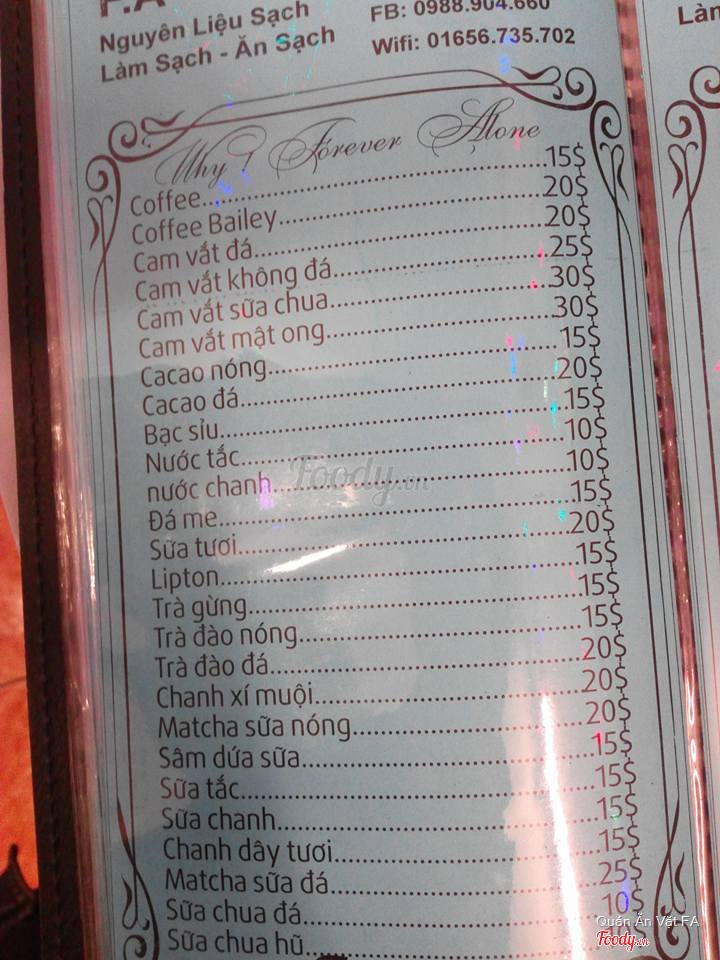 F.A
Nguyên Liệu Sạch
Làm Sạch - Ăn Sạch
FB: 0988.904.660
Wifi: 01656.735.702
Làm
Why ? Forever Alone
Coffee.....15$
Coffee Bailey.....20$
Cam vắt đá.....20$
Cam vắt không đá.....25$
Cam vắt sữa chua.....30$
Cam vắt mật ong.....30$
Cacao nóng.....15$
Cacao đá.....20$
Bạc sỉu.....15$
Nước tắc.....10$
nước chanh.....10$
Đá me.....15$
Sữa tươi.....20$
Lipton.....15$
Trà gừng.....15$
Trà đào nóng.....15$
Trà đào đá.....20$
Chanh xí muội.....20$
Matcha sữa nóng.....20$
Sâm dứa sữa.....15$
Sữa tắc.....15$
Sữa chanh.....15$
Chanh dây tươi.....15$
Matcha sữa đá.....25$
Sữa chua đá.....10$
Sữa chua hũ.....
Foody.vn
Quán Ăn Vặt FA
Foody.vn